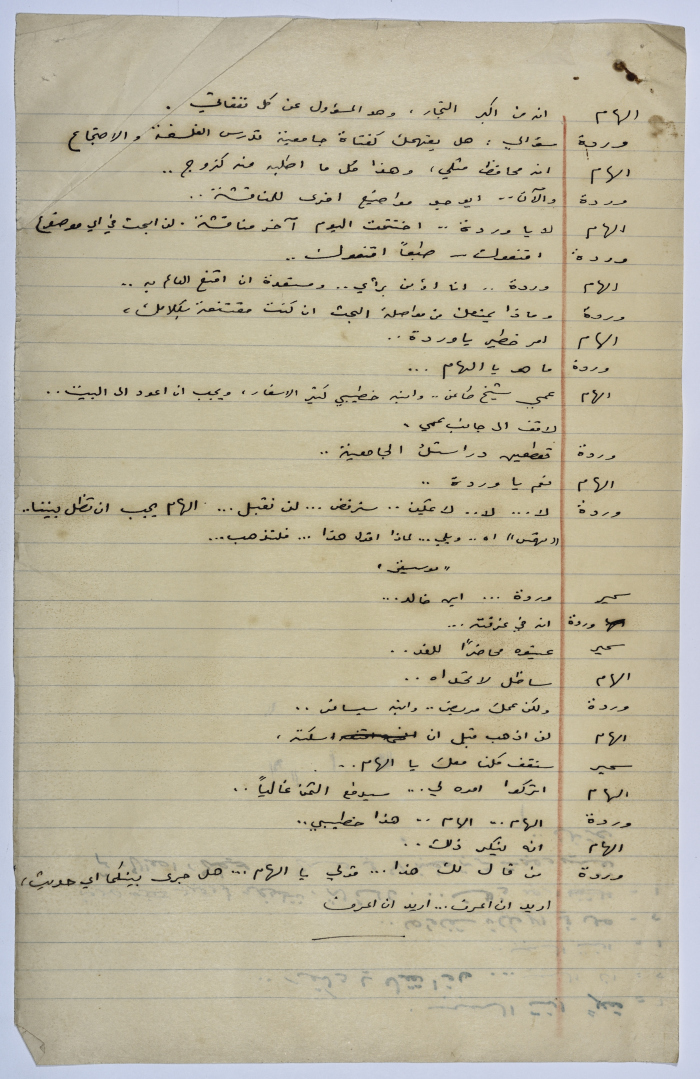 الهام انه من اكبر التجار، وهو المسؤول عن كل نفقاتي.
وردة سؤالي: هل يفهمك كفتاة جامعية تدرس الفلسفة والاجتماع
الهام انه محافظ مثلي، وهذا كل ما اطلبه منه كزوج ..
وردة والآن.. ايوجد مواضيع اخرى للمناقشة ..
الهام لا يا وردة .. اختتمت اليوم آخر مناقشة. لن ابحث في اي موضوع
وردة اقنعوك – طبعاً اقنعوك ..
الهام وردة .. انا اؤمن برأيي .. ومستعدة ان اقنع العالم به ..
وردة وماذا يمنعك من مواصلة البحث ان كنت مقتنعة بكلامك،
الهام امر خطير يا وردة ..
وردة ما هو يا الهام ...
الهام عمي شيخ طاعن .. وابنه خطيبي كثير الاسفار، ويجب ان اعود الى البيت ..
لاقف الى جانب عمي.
وردة تقطعين دراستك الجامعية ..
الهام نعم يا وردة ..
وردة لا... لا.. لا يمكن .. سنرفض ... لن نقبل ... الهام يجب ان تظل بيننا..
"تهمس" اه .. ويلي ... لماذا اقول هذا ... فلتذهب...
"موسيقى"
سمير وردة ... اين خالد...
وردة انه في غرفته ...
سمير عنده محاضرة للغد ..
الهام ساظل لا تحداه ..
وردة ولكن عمك مريض .. وابنه سيسافر ..
الهام لن اذهب قبل ان اسكته،
سمير سنقف كلنا معك يا الهام ...
الهام اتركوا امره لي ... سيدفع الثمن غالياً ..
وردة الهام .. الهام .. هذا خطيبي ..
الهام انه ينكر ذلك ..
وردة من قال لك هذا ... قولي يا الهام ... هل جرى بينكما اي حديث،
اريد ان اعرف ... اريد ان اعرف